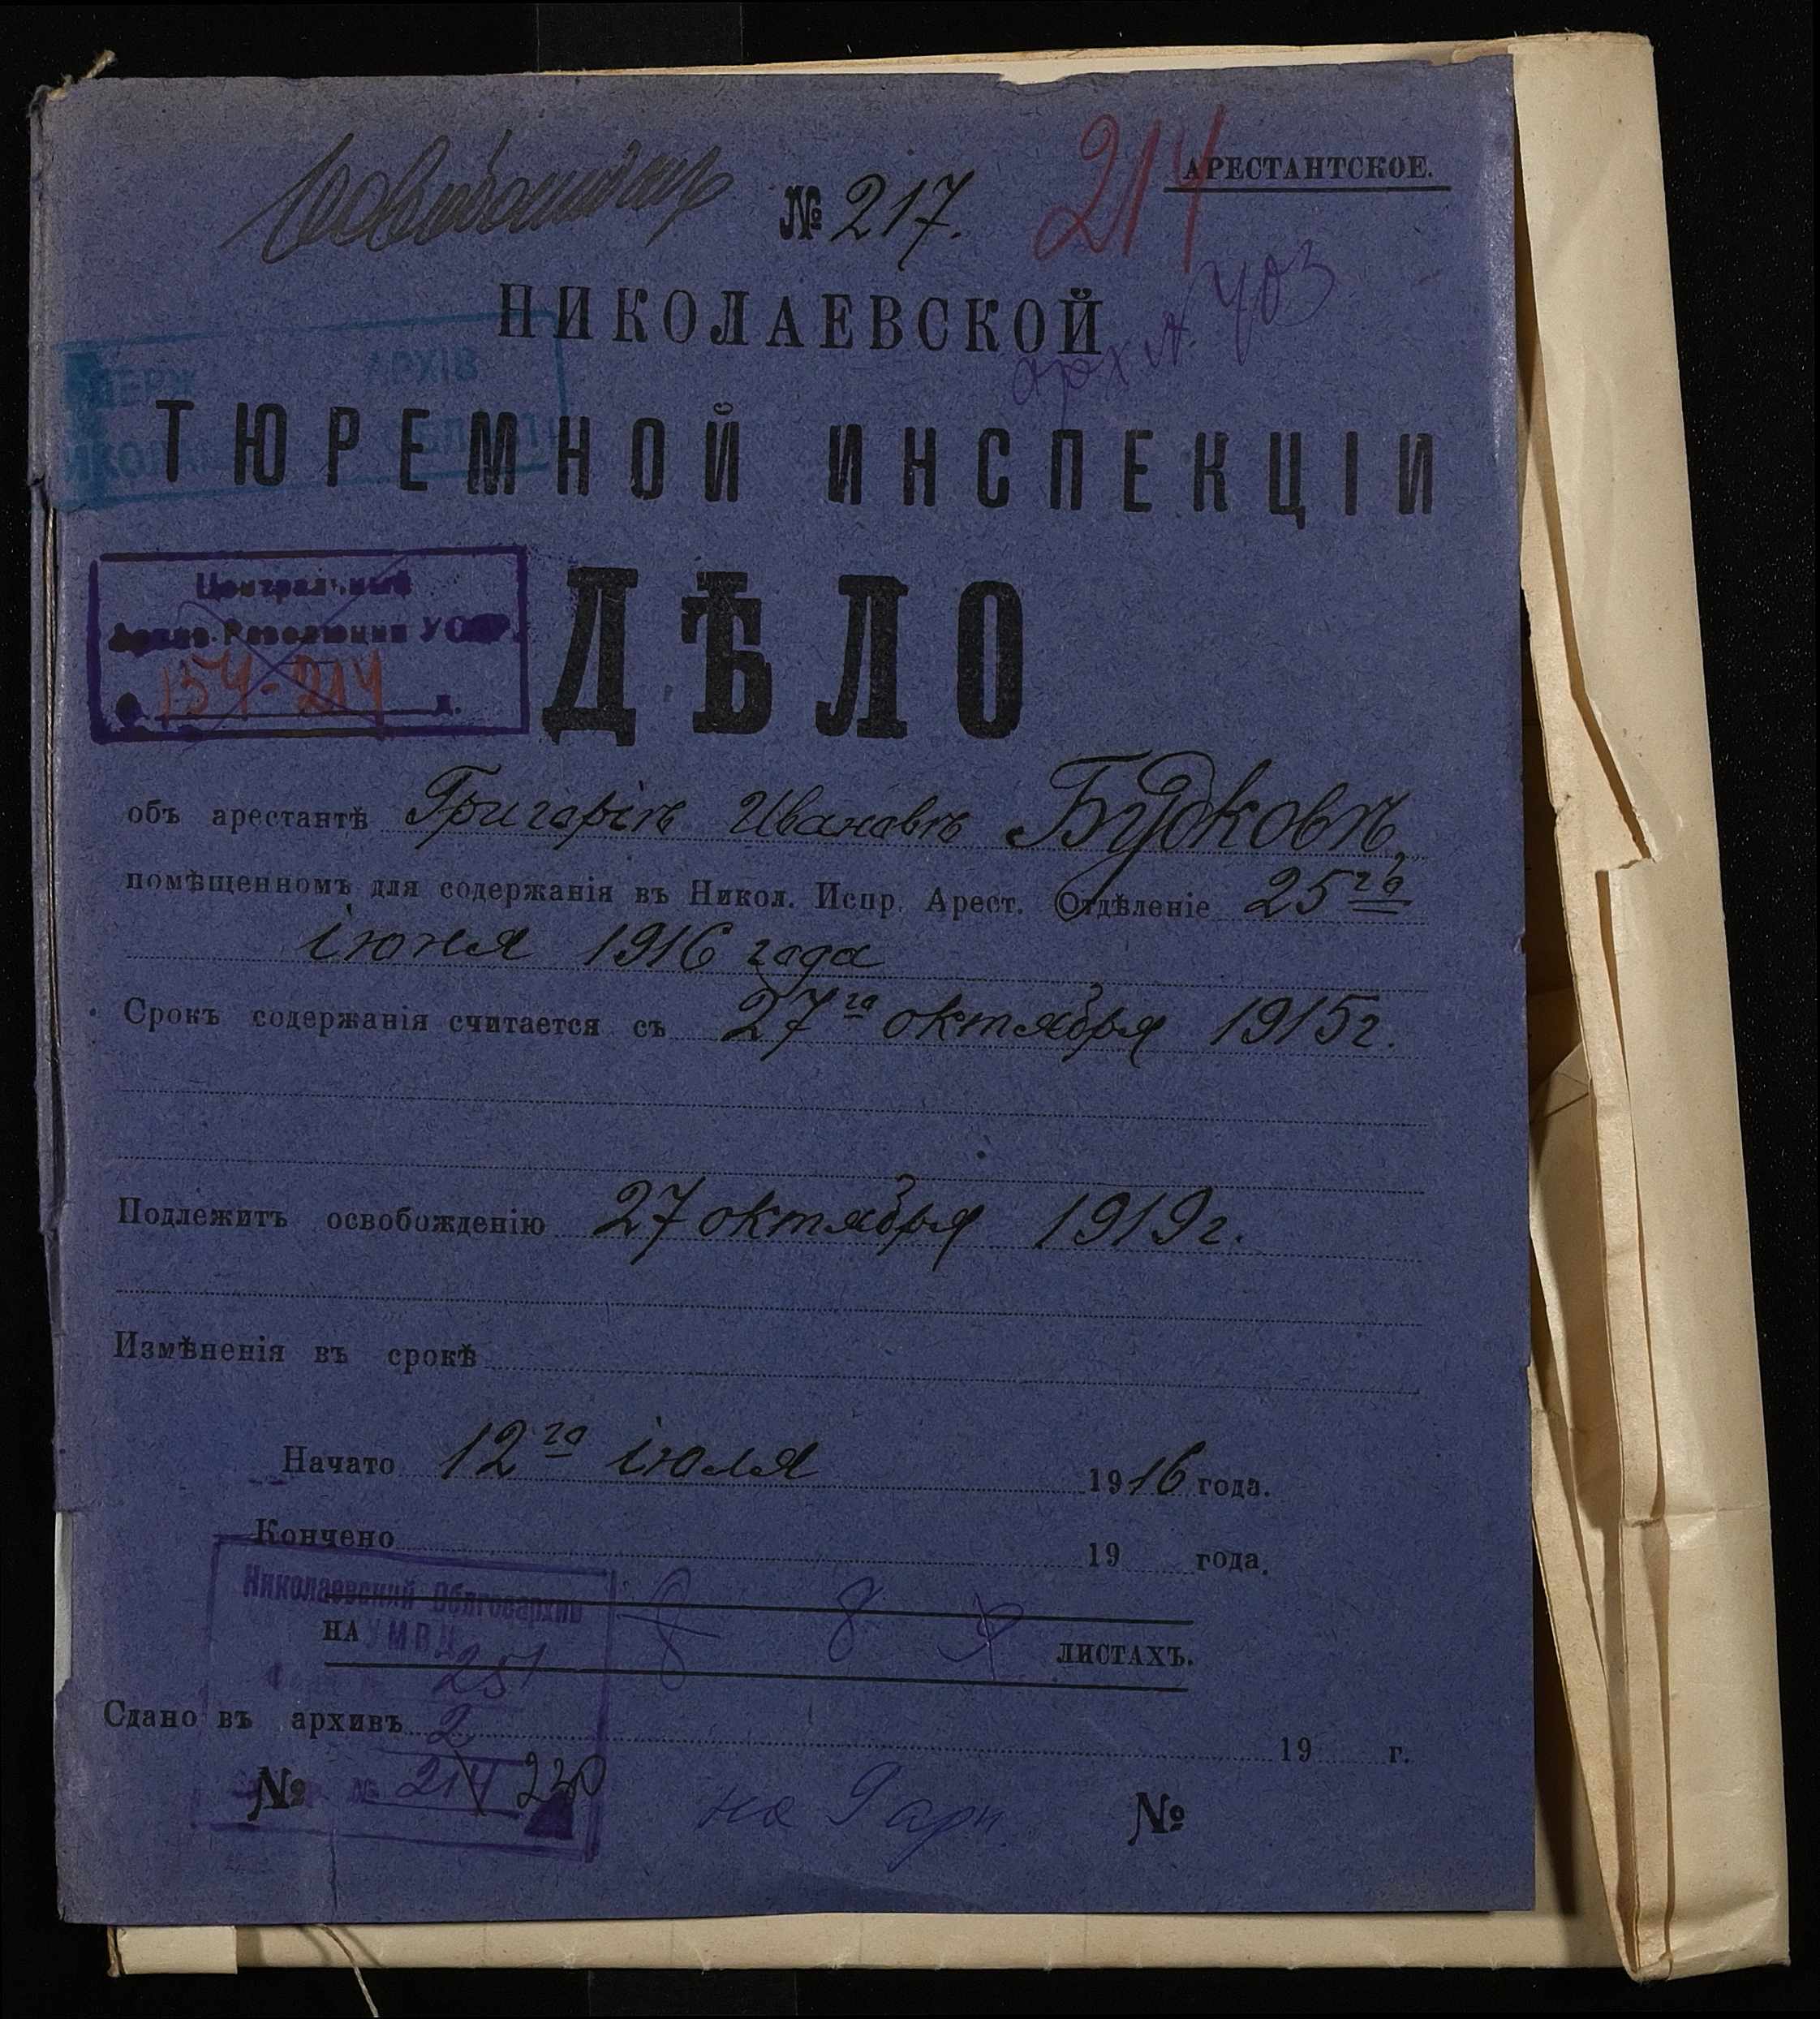 № 217.
214
АРЕСТАНТСКОЕ.
арх №. 403
НИКОЛАЕВСКОЙ
ДЕРЖ АРХІВ
ТЮРЕМНОЙ ИНСПЕКЦІИ
Центральный
Архив Революции УССР.
154-214
ДѢЛО
объ арестантѣ Григорій Ивановъ Будковъ
помѣщенномъ для содержанія въ Никол. Испр. Арест. Отдѣленіе 25го
іюня 1916 года
Срокъ содержанія считается съ 27го октября 1915г.
Подлежитъ освобожденію 27 октября 1919г.
Измѣненія въ срокѣ
Начато 12го іюля 1916 года.
Кончено 19 года.
Николаевский Облгосархив
УМВД
НА 8 8 ЛИСТАХЪ.
251
Сдано въ архивъ 2 19 г.
№ № 214 230 №